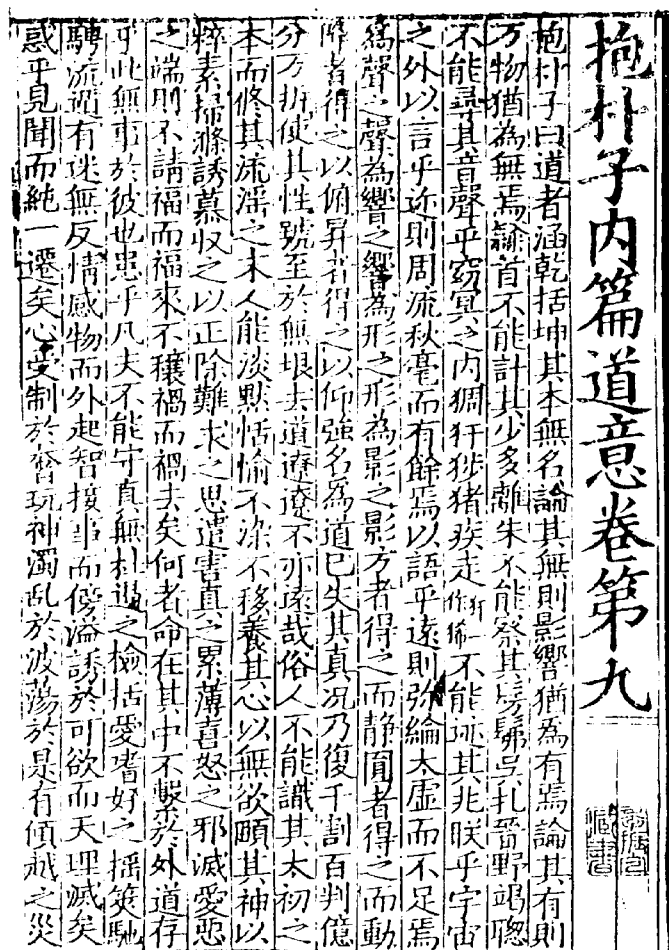 抱朴子内篇道意卷第九
抱朴子曰道者涵乾括坤其本無名論其無則影響猶為有焉論其有則
万物猶為無焉隸首不能計其少多離朱不能察其髣髴吳札晉野竭聦
不能尋其音聲乎窈冥之内猲犴猪疾走不能迹其兆朕乎宇宙
之外以言乎迩則周流秋毫而有餘焉以語乎遠則弥綸太虚而不足焉
為聲之聲為響之響為形之形為影之影方者得之而静員者得之而動
降者得之以俯昇者得之以仰強名為道已失其真况乃復千割百判億
分万析使其性號至於無垠去道遼遼不亦遠哉俗人不能識其太初之
本而修其流淫之末人能淡默恬愉不染不移養其心以無欲頤其神以
粹素掃滌誘慕収之以正除難求之思遣害真之累薄喜怒之邪滅愛惡
之端則不請福而福來不禳禍而禍去矣何者命在其中不繫於外道存
乎此無事於彼也患乎凡夫不能守真無杜遏之檢括愛嗜好之揺奪馳
騁流遁有迷無反情感物而外起智接事而傍溢誘於可欲而天理滅矣
惑乎見聞而純一遷矣心受制於奢玩神濁乱於波蕩於是有傾越之災